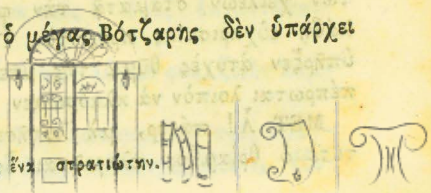 ὁ μέγας Βότζαρης δὲν ὑπάρχει
ἕνα στρατιώτην.